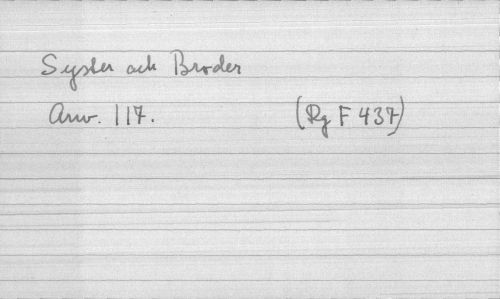 Syster och Broder
Arw. 117.
(Rg F 437)